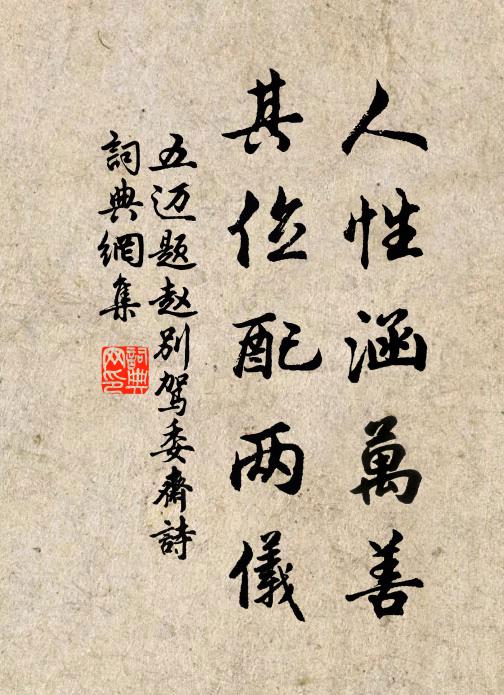 人性涵萬善
其位配两儀
五迈题赵別駕委齋詩
詞典網集
詞典
网印